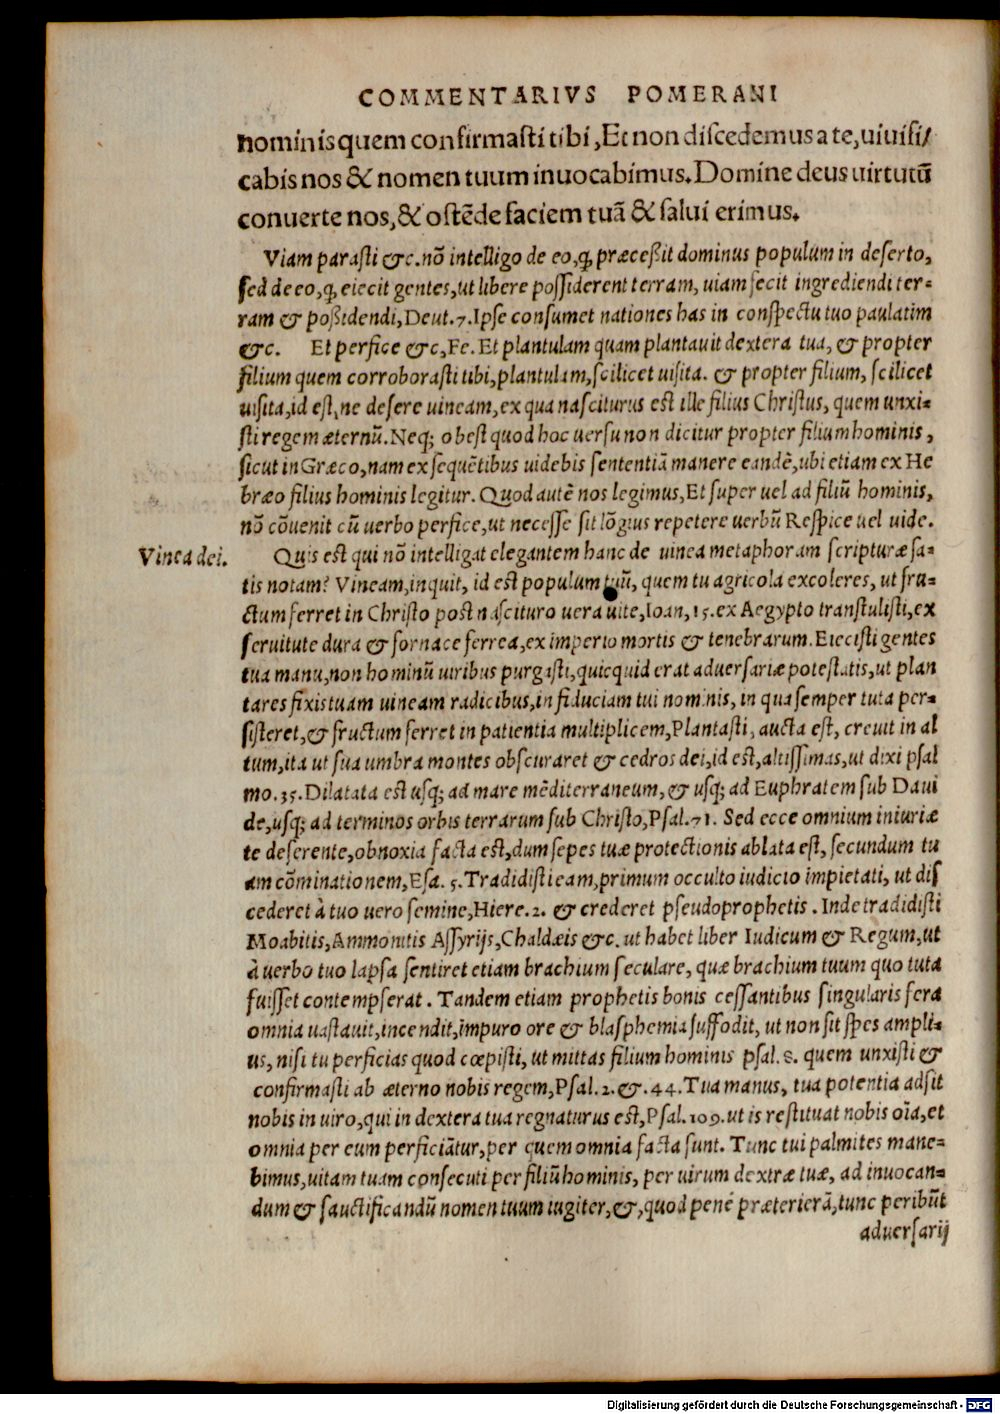 COMMENTARIVS POMERANI
nominis quem confirmasti tibi, Et non discedemus a te, uiuifi/
cabis nos & nomen tuum inuocabimus. Domine deus uirtutū
conuerte nos, & ostēde faciem tuā & salui erimus.
Viam parasti &c. nō intelligo de eo, q, præceßit dominus populum in deserto,
sed de eo, q, eiecit gentes, ut libere possiderent terram, uiam fecit ingrediendi ter=
ram & poßidendi, Deut. 7. Ipse consumet nationes has in conspectu tuo paulatim
&c. Et perfice &c, Fe. Et plantulam quam plantauit dextera tua, & propter
filium quem corroborasti tibi, plantulam, scilicet uisita. & propter filium, scilicet
uisita, id est, ne desere uineam, ex qua nasciturus est ille filius Christus, quem unxi=
sti regem æternū. Neq; obest quod hoc uersu non dicitur propter filium hominis,
sicut in Græco, nam ex sequētibus uidebis sententiā manere eandē, ubi etiam ex He
bræo filius hominis legitur. Quod autē nos legimus, Et super uel ad filiū hominis,
nō cōuenit cū uerbo perfice, ut necesse sit lōgius repetere uerbū Respice uel uide.
Vinea dei. Quis est qui nō intelligat elegantem hanc de uinea metaphoram scripturæ sa=
tis notam? Vineam, inquit, id est populum tuū, quem tu agricola excoleres, ut fru=
ctum ferret in Christo post nascituro uera uite, Ioan, 15. ex Aegypto transtulisti, ex
seruitute dura & fornace ferrea, ex imperio mortis & tenebrarum. Eiecisti gentes
tua manu, non hominū uiribus purgasti, quicquid erat aduersariæ potestatis, ut plan
tares fixis tuam uineam radicibus, in fiduciam tui nominis, in qua semper tuta per=
sisteret, & fructum ferret in patientia multiplicem, Plantasti, aucta est, creuit in al
tum, ita ut sua umbra montes obscuraret & cedros dei, id est, altissimas, ut dixi psal
mo. 35. Dilatata est usq; ad mare mēditerraneum, & usq; ad Euphratem sub Daui
de, usq; ad terminos orbis terrarum sub Christo, Psal. 71. Sed ecce omnium iniuriæ
te deserente, obnoxia facta est, dum sepes tuæ protectionis ablata est, secundum tu
am cōminationem, Esa. 5. Tradidisti eam, primum occulto iudicio impietati, ut dis
cederet à tuo uero semine, Hiere. 2. & crederet pseudoprophetis. Inde tradidisti
Moabitis, Ammonitis Assyrijs, Chaldæis &c. ut habet liber Iudicum & Regum, ut
à uerbo tuo lapsa sentiret etiam brachium seculare, quæ brachium tuum quo tuta
fuisset contempserat. Tandem etiam prophetis bonis cessantibus singularis fera
omnia uastauit, incendit, impuro ore & blasphemia suffodit, ut non sit spes ampli=
us, nisi tu perficias quod cœpisti, ut mittas filium hominis psal. 8. quem unxisti &
confirmasti ab æterno nobis regem, Psal. 2. &. 44. Tua manus, tua potentia adsit
nobis in uiro, qui in dextera tua regnaturus est, Psal. 109. ut is restituat nobis oīa, et
omnia per eum perficiātur, per quem omnia facta sunt. Tunc tui palmites mane=
bimus, uitam tuam consecuti per filiū hominis, per uirum dextræ tuæ, ad inuocan=
dum & sanctificandū nomen tuum iugiter, &, quod penè præterierā, tunc peribūt
aduersarij
Digitalisierung gefördert durch die Deutsche Forschungsgemeinschaft - DFG